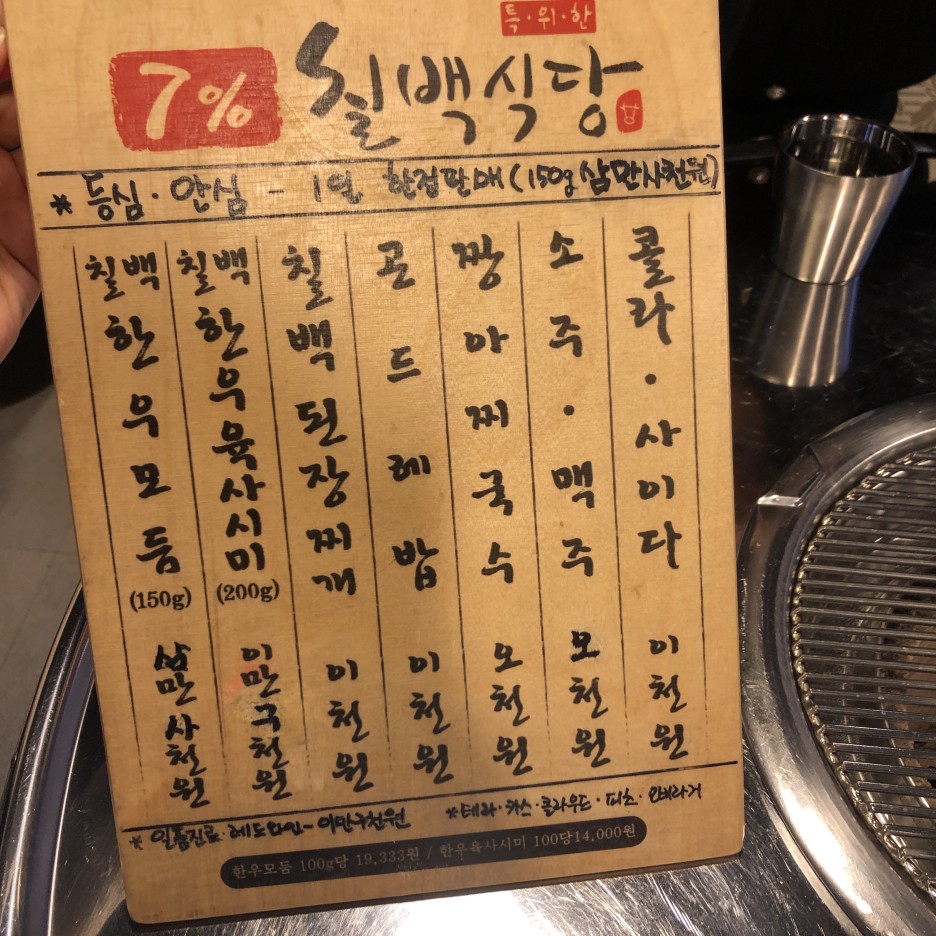 특·위·한
7% 칠백식당
* 등심·안심 - 1일 한정판매(150g 삼만사천원)
칠백한우모둠 (150g) 삼만사천원
칠백한우육사시미 (200g) 이만구천원
칠백된장찌개 이천원
곤드레밥 이천원
짱아찌국수 오천원
소주·맥주 오천원
콜라·사이다 이천원
* 일품진로·레드와인- 이만구천원
*테라·카스·클라우드·피츠·오비라거
한우모둠 100g당 19,333원 / 한우육사시미 100당14,000원